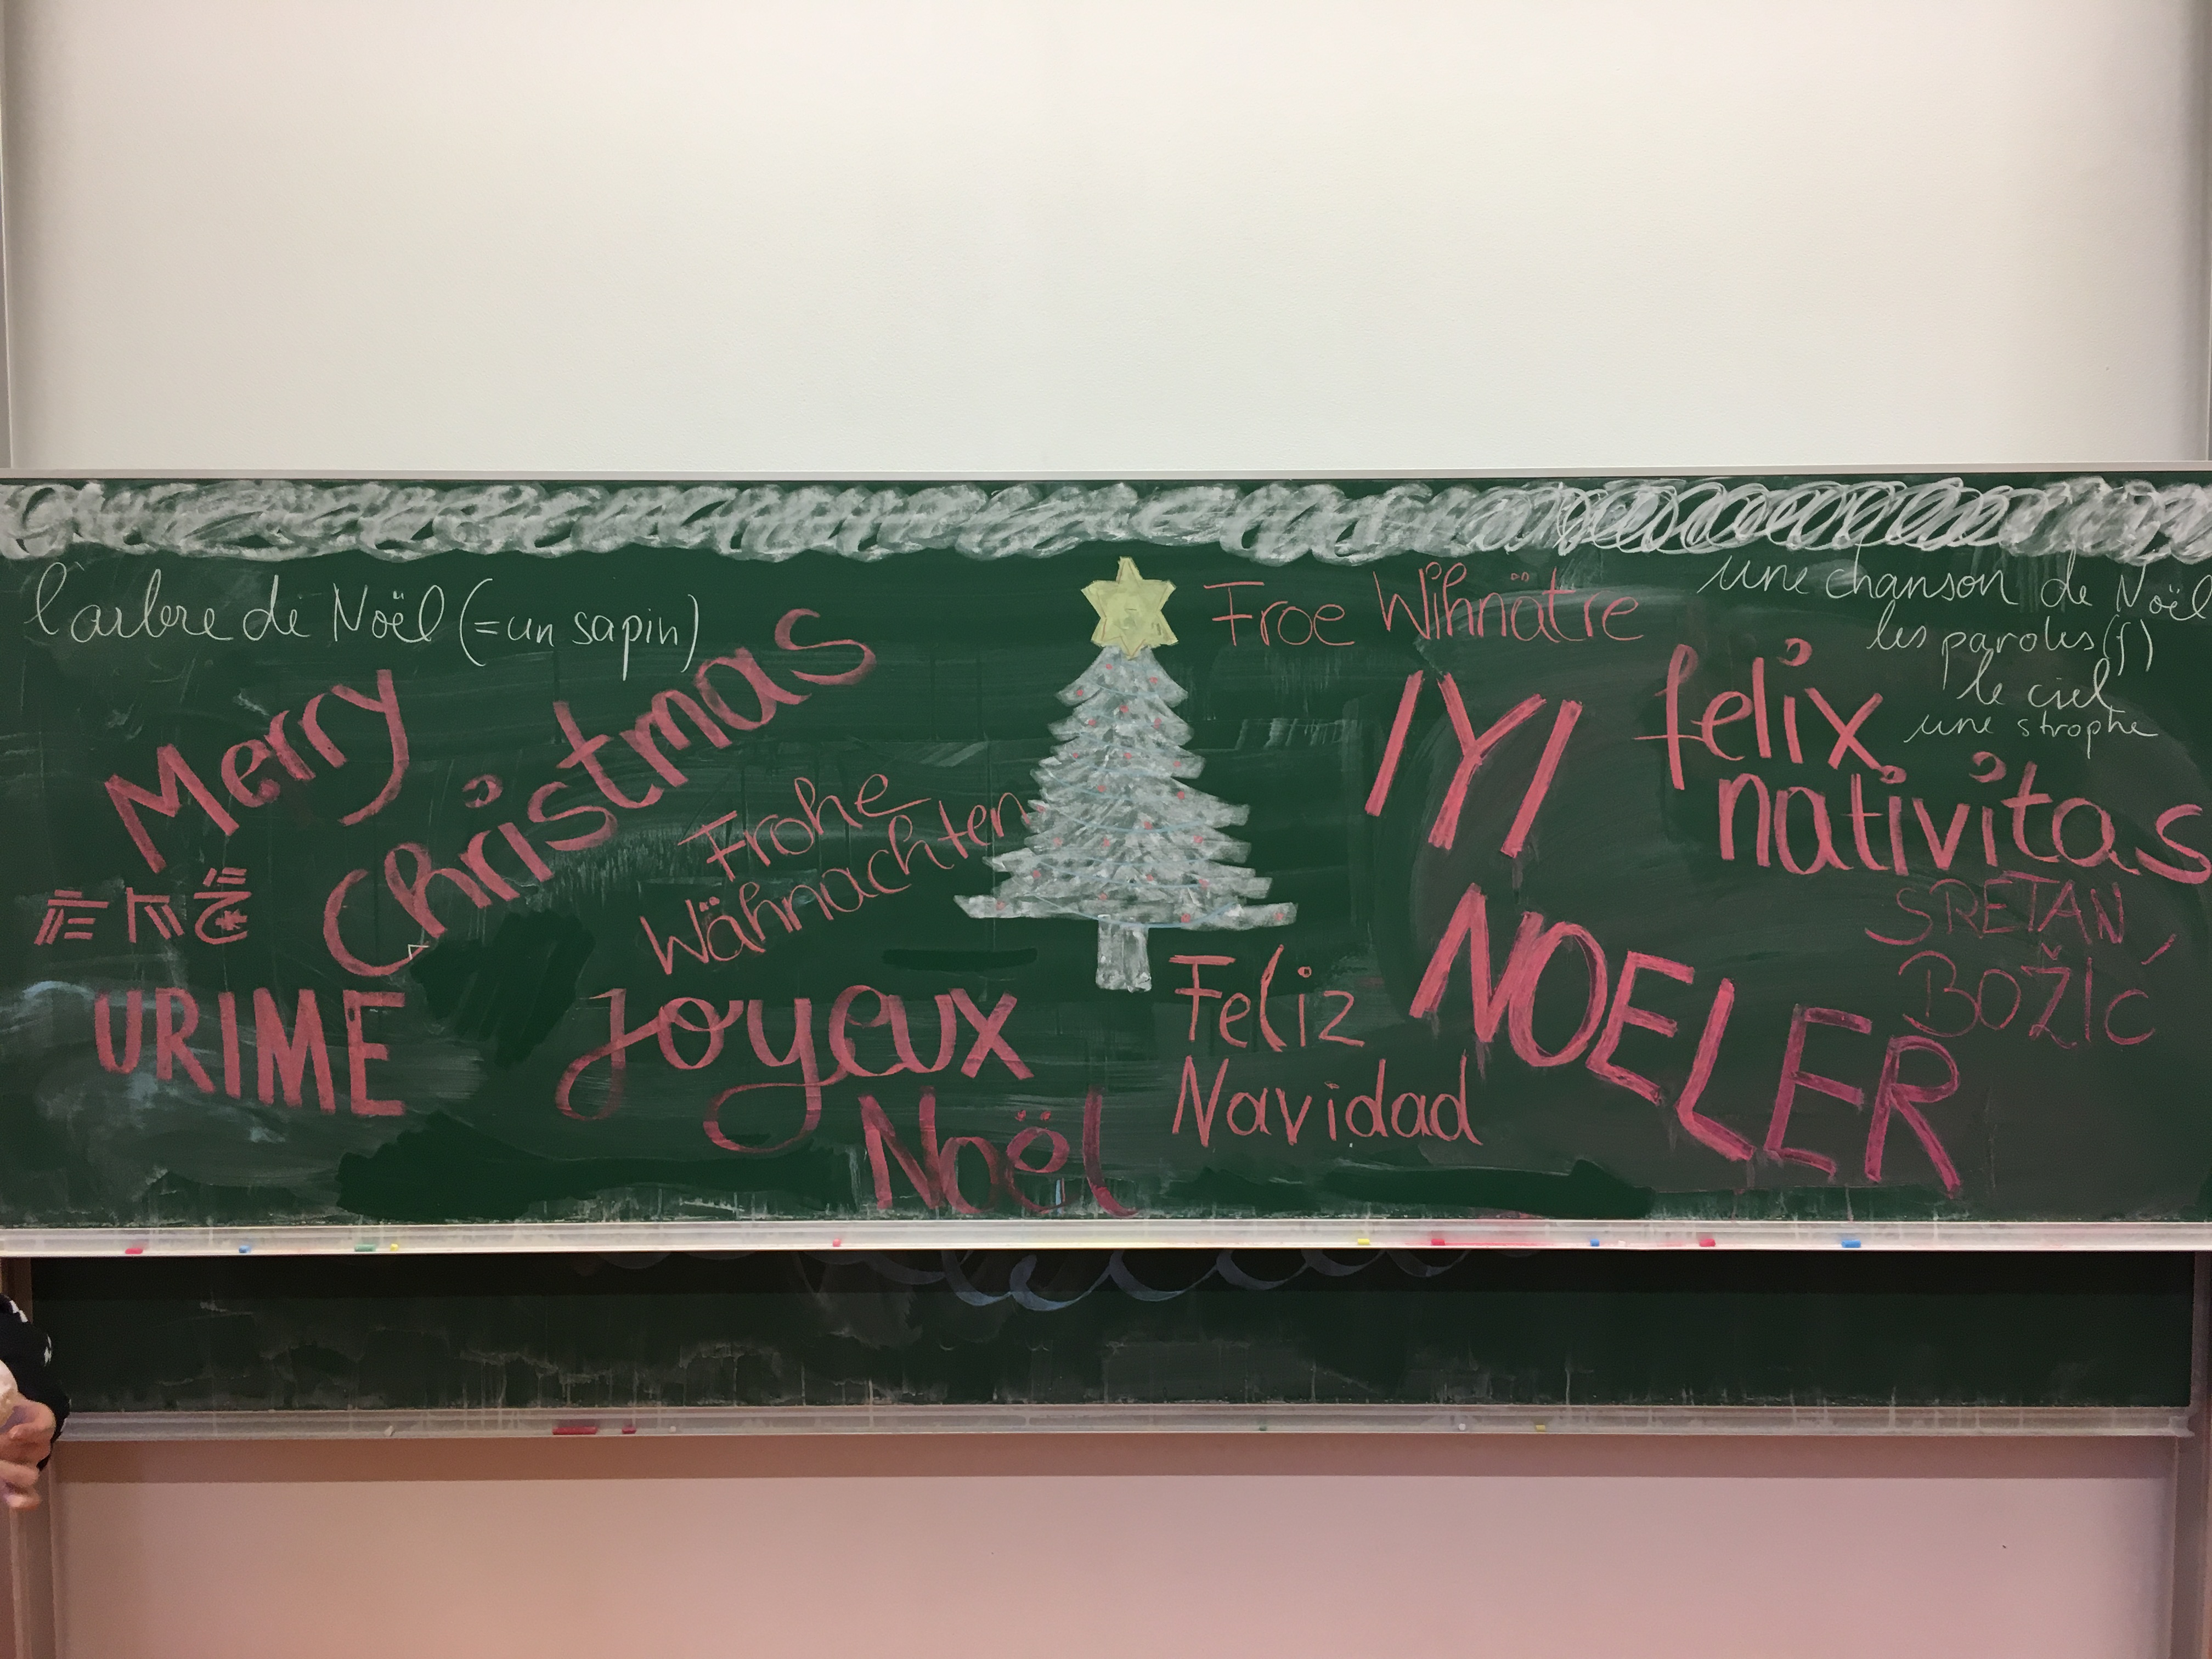 l'arbre de Noël (= un sapin)
Merry
Christmas
URIME
Frohe
Wähnachten
Joyeux
Noël
Froe Wihnätre
Feliz
Navidad
IYI
NOELER
une chanson de Noël
les paroles (f)
le ciel
une strophe
felix
nativitas
SRETAN
BOŽIĆ